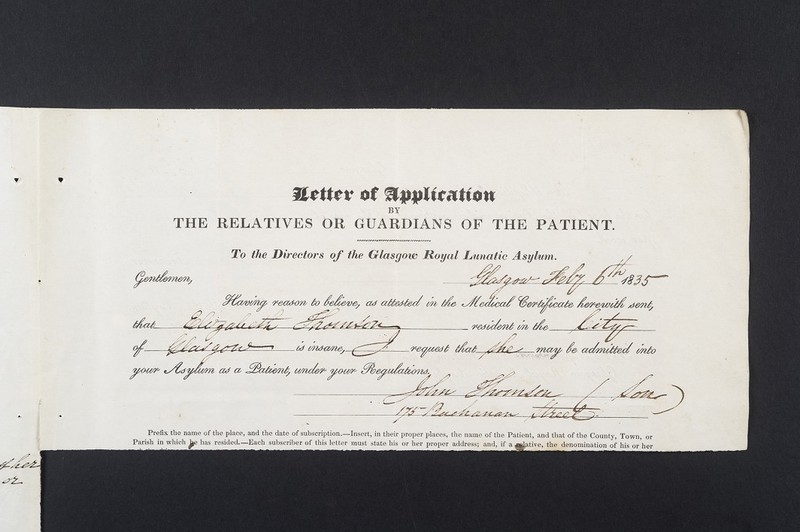 Letter of Application
BY
THE RELATIVES OR GUARDIANS OF THE PATIENT.
To the Directors of the Glasgow Royal Lunatic Asylum.
Glasgow Feby 6th 1835
Gentlemen,
Having reason to believe, as attested in the Medical Certificate herewith sent,
that Elizabeth Thomson resident in the City
of Glasgow is insane, I request that she may be admitted into
your Asylum as a Patient, under your Regulations,
John Thomson (Son)
175 Buchanan Street
Prefix the name of the place, and the date of subscription.—Insert, in their proper places, the name of the Patient, and that of the County, Town, or
Parish in which he has resided.—Each subscriber of this letter must state his or her proper address; and, if a relative, the denomination of his or her